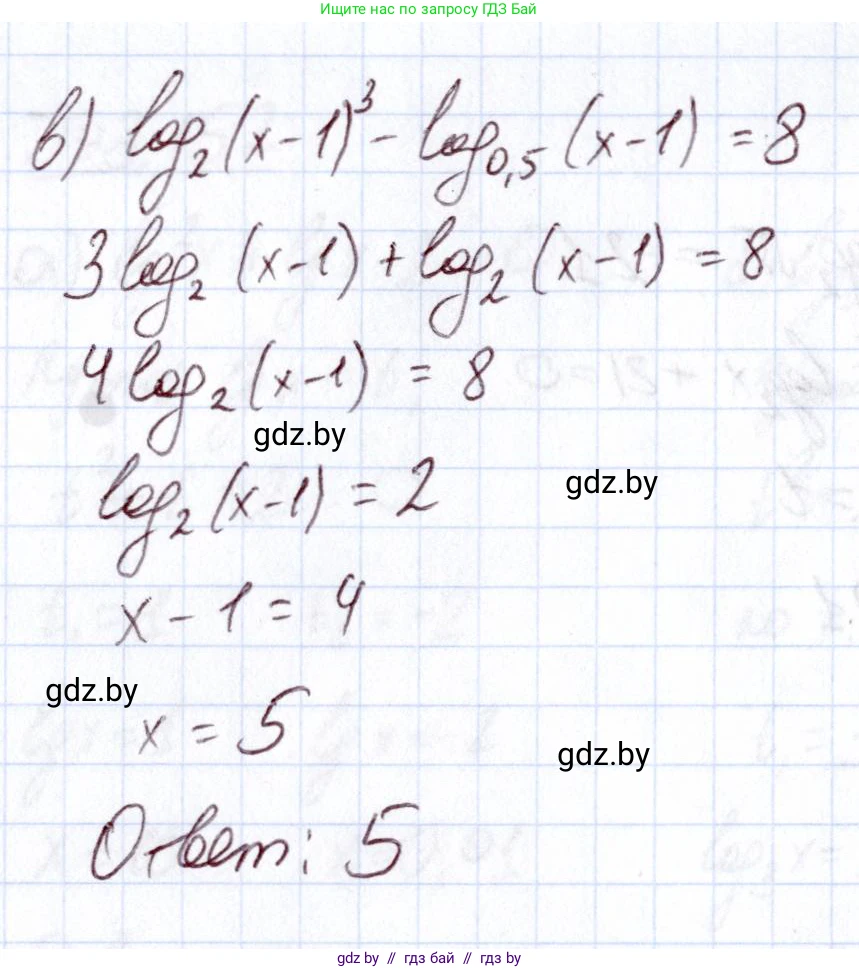 Ищите нас по запросу ГДЗ Бай
в) log₂(x-1)³ - log₀,₅(x-1) = 8
3log₂(x-1) + log₂(x-1) = 8
4log₂(x-1) = 8
gdz.by
log₂(x-1) = 2
gdz.by
x - 1 = 4
gdz.by
x = 5
gdz.by
Ответ: 5
gdz.by // гдз бай // гдз by